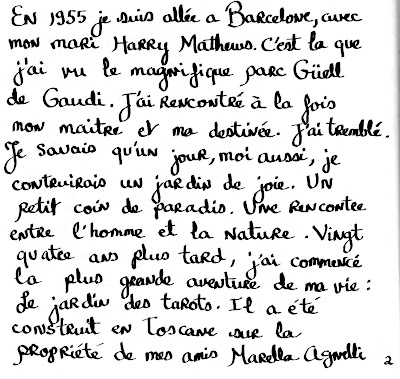 EN 1955 je suis allée a Barcelone, avec
mon mari Harry Mathews. C'est la que
j'ai vu le magnifique parc Güell
de Gaudi. J'ai rencontré à la fois
mon maitre et ma destinée. J'ai tremblé.
Je savais qu'un jour, moi aussi, je
contruirais un jardin de joie. UN
petit coin de paradis. Une rencontre
entre l'homme et la nature. Vingt
quatre ans plus tard, j'ai commencé
la plus grande aventure de ma vie :
Le jardin des tarots. Il a été
construit en Toscane sur la
propriété de mes amis Marella Agnelli 2